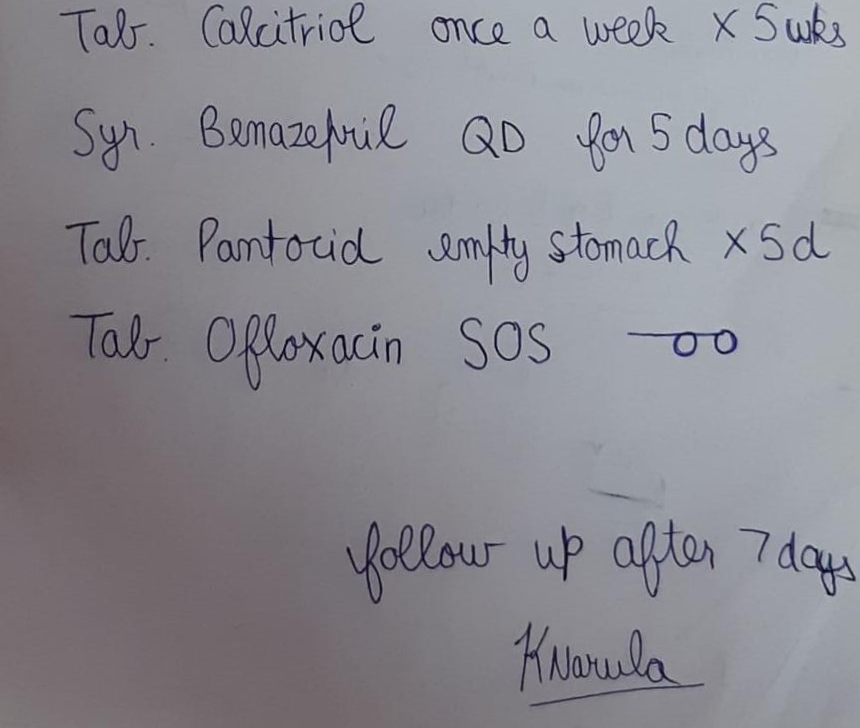 Tab. Calcitriol once a week x 5 wks
Syr. Benazepril QD for 5 days
Tab. Pantocid empty stomach x 5d
Tab. Ofloxacin SOS —oo
follow up after 7 days
KNarula